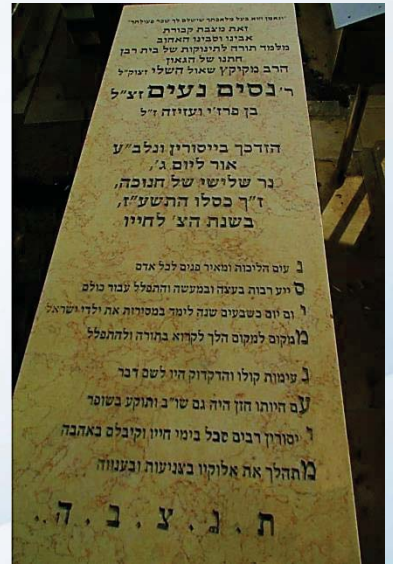 "ונאמן הוא בעל מלאכתך שישלם לך שכר פעולתך"
זאת מצבת קבורת
אבינו וסבינו האהוב
מלמד תורה לתינוקות של בית רבן
חתנו של הגאון
הרב מקיקץ שאול השלי זצוק"ל
ר' נסים נעים זצ"ל
בן פרז'י ועזיזה ז"ל
הזדכך בייסורין ונלב"ע
אור ליום ג',
נר שלישי של חנוכה,
ז"ך כסלו התשע"ז,
בשנת הצ' לחייו
נ עים הליכות ומאיר פנים לכל אדם
ס ייע רבות בעצה ובמעשה והתפלל עבור כולם
י ום יום כשבעים שנה לימד במסירות את ילדי ישראל
מ מקום למקום הלך לקרוא בתורה ולהתפלל
נ עימות קולו והדקדוק היו לשם דבר
ע ם היותו חזן היה גם שו"ב ותוקע בשופר
י יסורין רבים סבל בימי חייו וקיבלם באהבה
מ תהלך את אלוקיו בצניעות ובענווה
ת . נ . צ . ב . ה . .